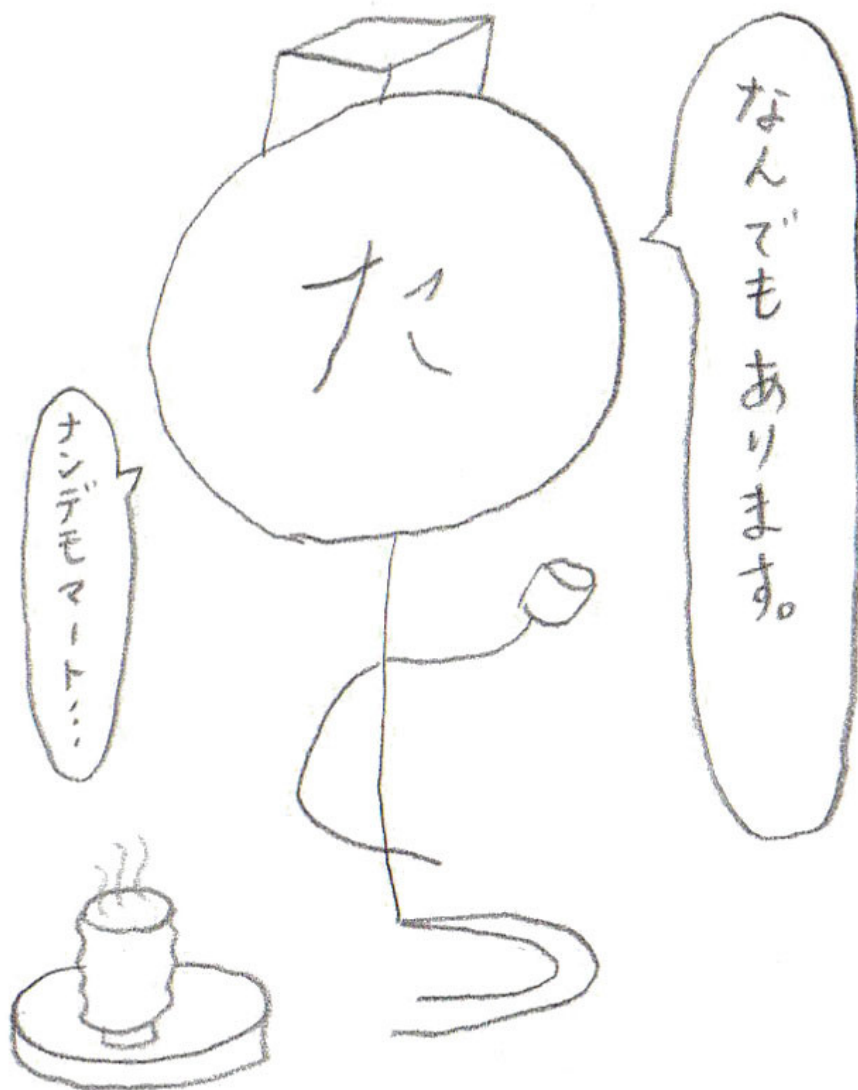 なんでもあります。
た
ナンデモマート…